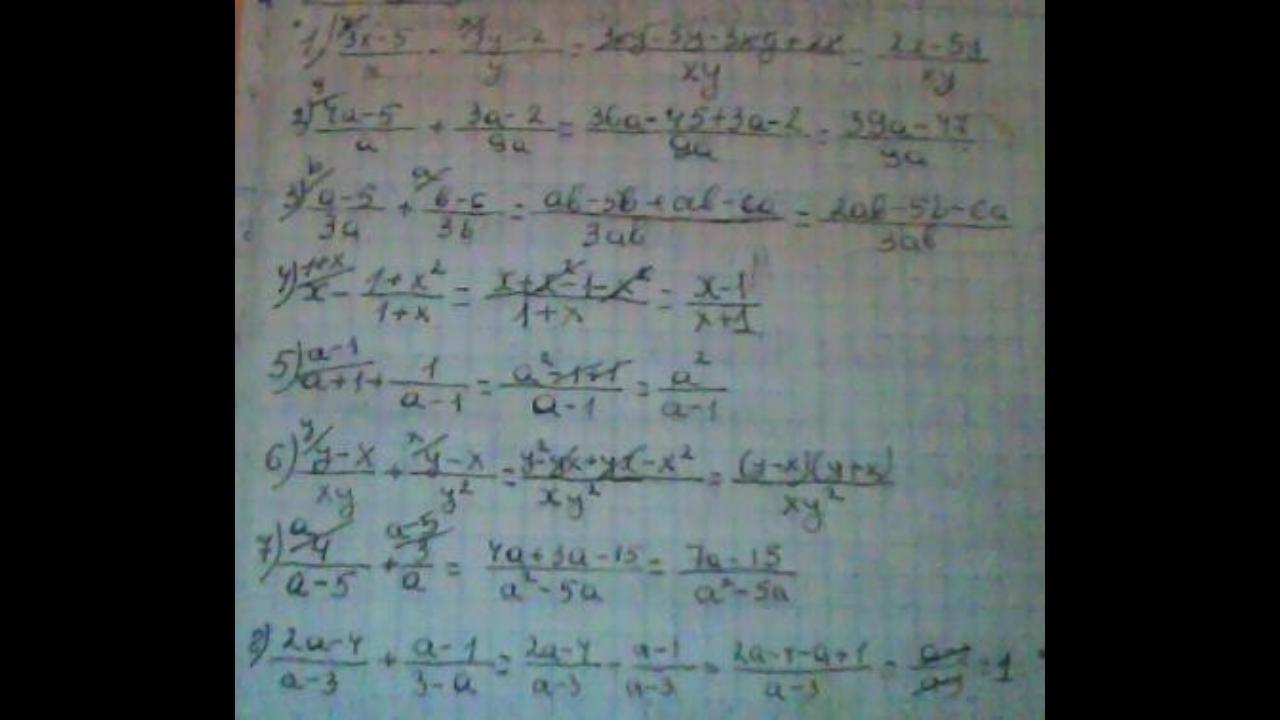 1) 3x-5/x - 3y-2/y = 3xy-5y-3xy+2x/xy = 2x-5y/xy
2) 4a-5/a + 3a-2/9a = 36a-45+3a-2/9a = 39a-47/9a
3) a-5/3a + b-6/3b = ab-5b+ab-6a/3ab = 2ab-5b-6a/3ab
4) x - 1+x²/1+x = x+x²-1-x²/1+x = x-1/x+1
5) a+1+ 1/a-1 = a²-1+1/a-1 = a²/a-1
6) y-x/xy + y-x/y² = y²-yx+yx-x²/xy² = (y-x)(y+x)/xy²
7) 4/a-5 + 3/a = 4a+3a-15/a²-5a = 7a-15/a²-5a
8) 2a-4/a-3 + a-1/3-a = 2a-4/a-3 - a-1/a-3 = 2a-4-a+1/a-3 = a-3/a-3 = 1